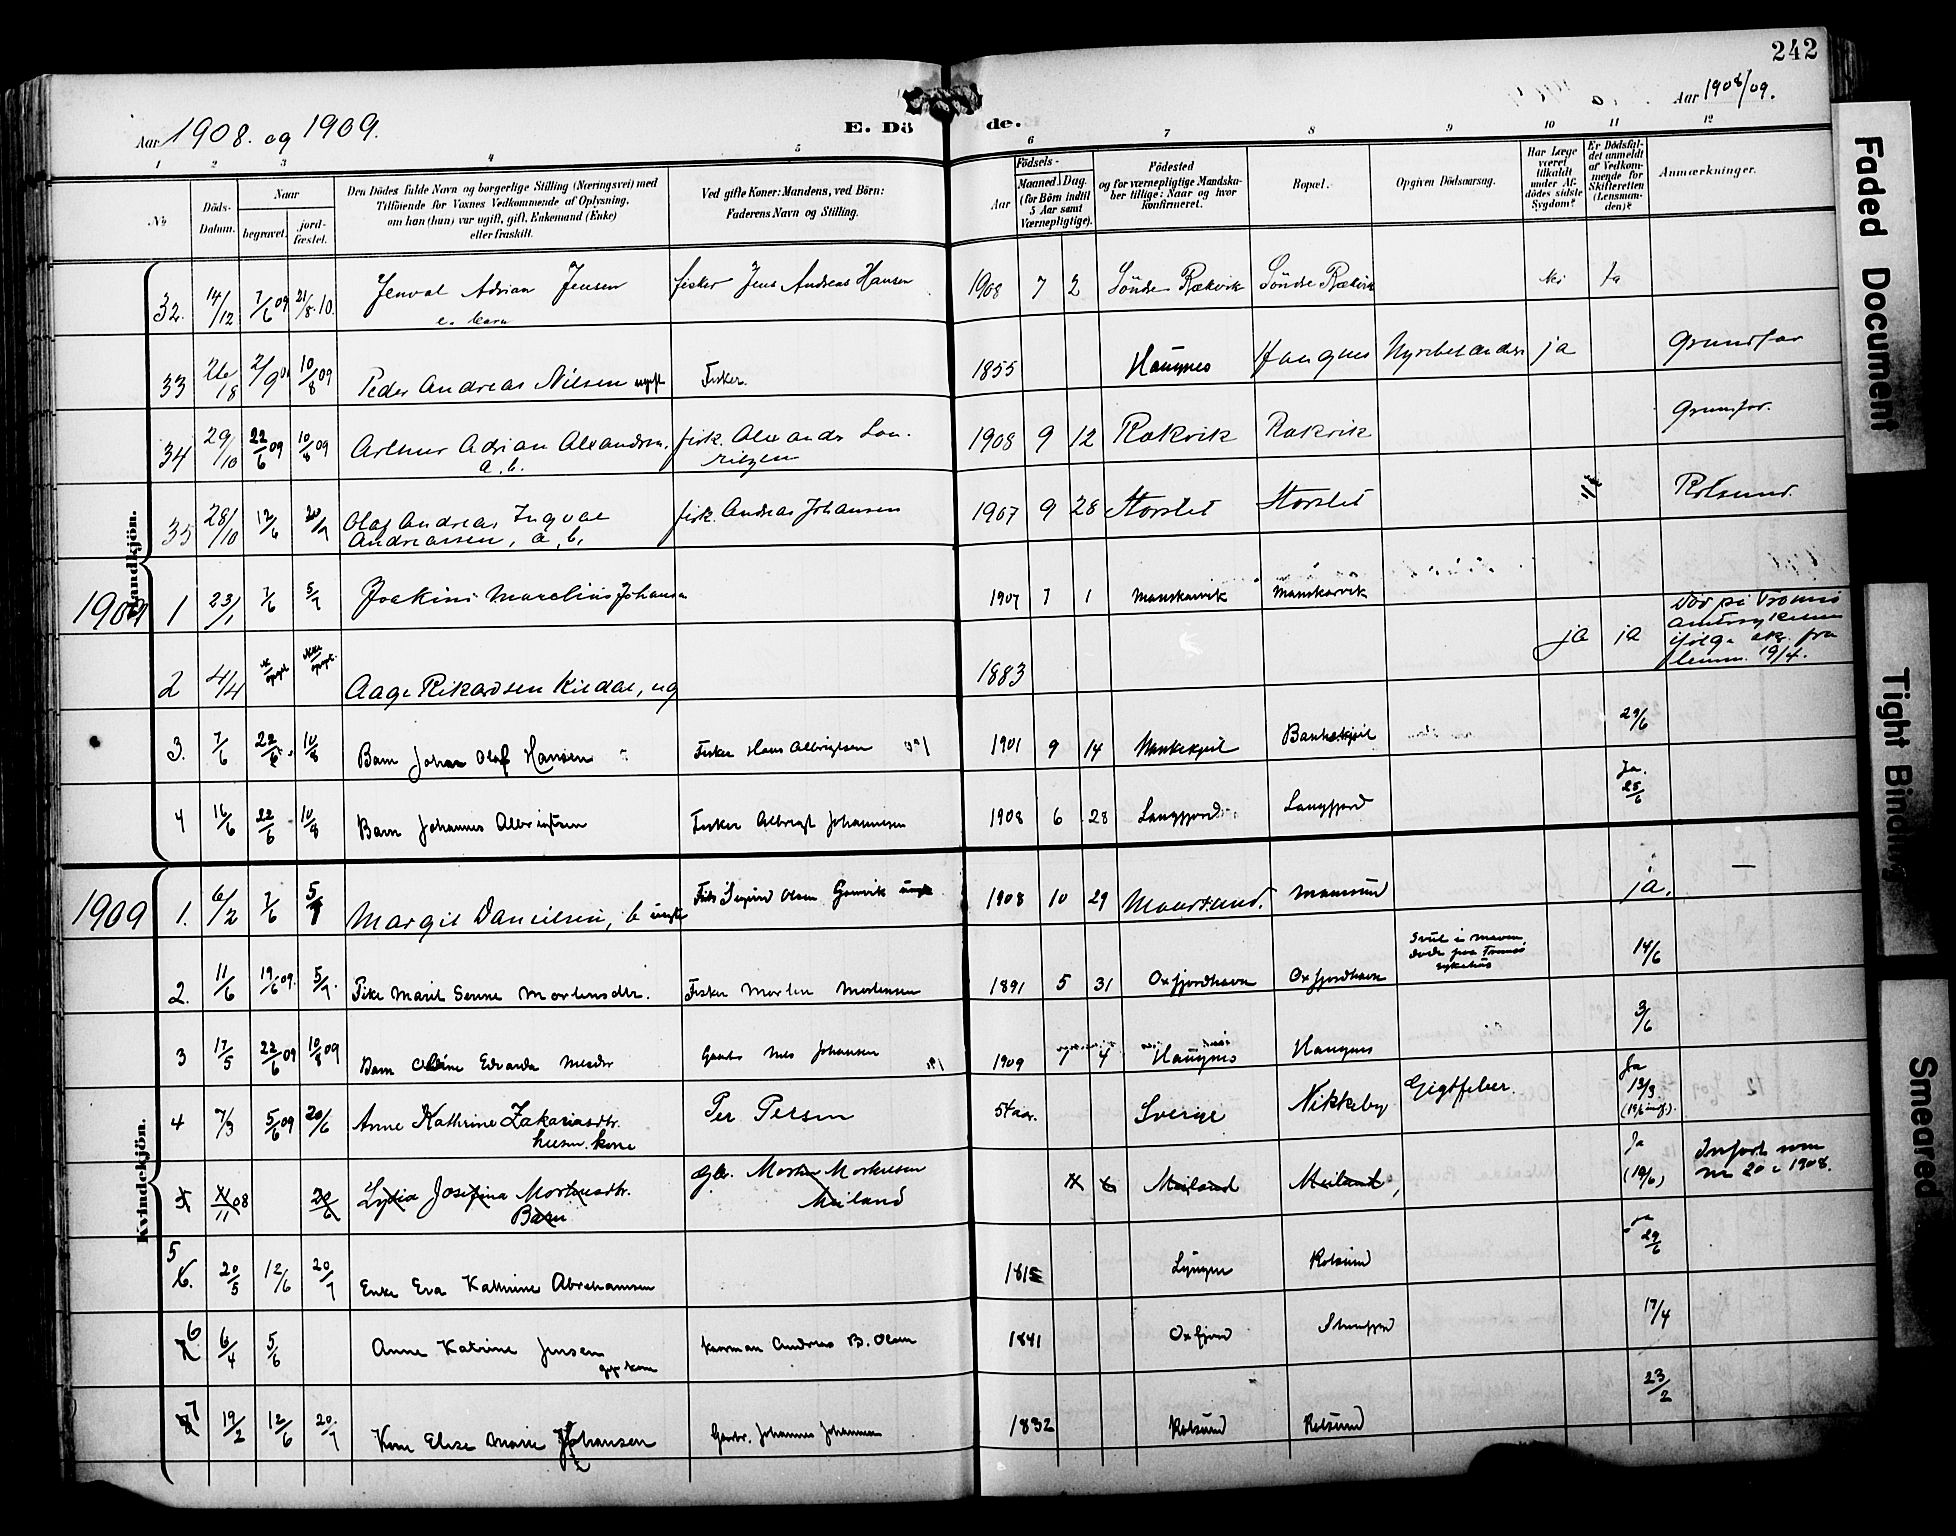 242
Aar 1908. og 1909.
E. Dö de.
Aar 1908/09.
1 2 3 4 5 6 7 8 9 10 11 12
No
Döds-Datum.
Naar
begravet.
jord-fæstet.
Den Dödes fulde Navn og borgerlige Stilling (Næringsvei) med
Tilföiende for Voxnes Vedkommende af Oplysning,
om han (hun) var ugift, gift, Enkemand (Enke)
eller fraskilt.
Ved gifte Koner: Mandens, ved Börn:
Faderens Navn og Stilling.
Födsels-
Aar
Maaned. Dag.
(for Börn indtil
5 Aar samt
Værnepligtige).
Födested
og for værnepligtige Mandska-
ber tillige: Naar og hvor
konfirmeret.
Bopæl.
Opgiven Dödsaarsag.
Har Læge
været
tilkaldt
under Af-
dödes sidste
Sygdom?
Er Dödsfal-
det anmeldt
af Vedkom-
mende for
Skifteretten
(Lensman-
den)?
Anmærkninger.
Mandkjön.
32. 14/12 7/6 09 21/8.10. Jenval Adrian Jensen fisker Jens Andreas Hansen 1908 7 2 Söndre Rækvik Söndre Rækvik Nei Ja
33 26/8 2/9 10/8 09 Peder Andreas Nilsen ugift Fisker. 1855 Haugnes Haugnes ja
34 29/10 22/6 09 10/8 09 Arthur Adrian Alexandersen, fisk. Alexander Lau- 1908 9 12 Rakvik Rakvik
a. b. ritzen
35 28/10 12/6 20/7 Olaf Andreas Ingval fisk. Andreas Johansen 1907 9 28 Storslet Storslet Rotsund.
Andreassen, a. b.
1909 1 23/1 7/6 5/7 Joakim Marelius Johansen 1907 7 1 Manskarvik Manskarvik
2 4/4 Aage Rikardsen Kildal, ug 1883 ja ja
19/4.
3. 7/6 22/6. 10/8 Barn Johan Olaf Hansen Fisker Hans Albrigtsen 1901 9 14 29/6
4 16/6 22/6 10/8 Barn Johannes Albrigtsen Fisker Albrigt Johannesen 1908 6 28 Langfjord Langfjord Ja. 25/6
Kvindekjön.
1909 1. 6/2 7/6 5/7 Margit Danielsen, b Sigurd Olsen 1908 10 29 Maursund. Maursund ja. —
2. 11/6 19/6 09. 5/7. Pike Marit Serine Mortensdtr. Fisker Morten Mortensen 1891 5 31 Oxfjordhavn Oxfjordhavn Svul i Maven 14/6
döde paa Tromsö
sykehus
3 17/5 22/6 09 10/8 09 Barn Edvarda Nilsdtr Gaardbr Nils Johansen 1909 4 Haugnes Haugnes 3/6
4 7/3 5/6 09 20/6 Anne Kathrine Zakariasdtr. Per Persen 54 aar. Sverige Nikkeby Gigtfeber. Ja 13/3
kone
5 08 Lydia Josefina Mortensdtr. Morten Mortensen Meiland Meiland, Ja (19/6) Indfört som
Barn Meiland no 20 i 1908.
5 6. 20/5 12/6 20/7 Enke Eva Kathrine Abrahamsen 1815 Lyngen Rotsund ja 29/6
6 7. 6/4 5/6 Anne Katrine Jensen Andreas B. Olsen 1841 Oxfjord 17/4
kone
7 8 19/2 12/6 20/7 Kone Elise Marie Johansen Gaardbr. Johannes Johannesen 1832 Rotsund Rotsund 23/2
Faded Document
Tight Binding
Smeared